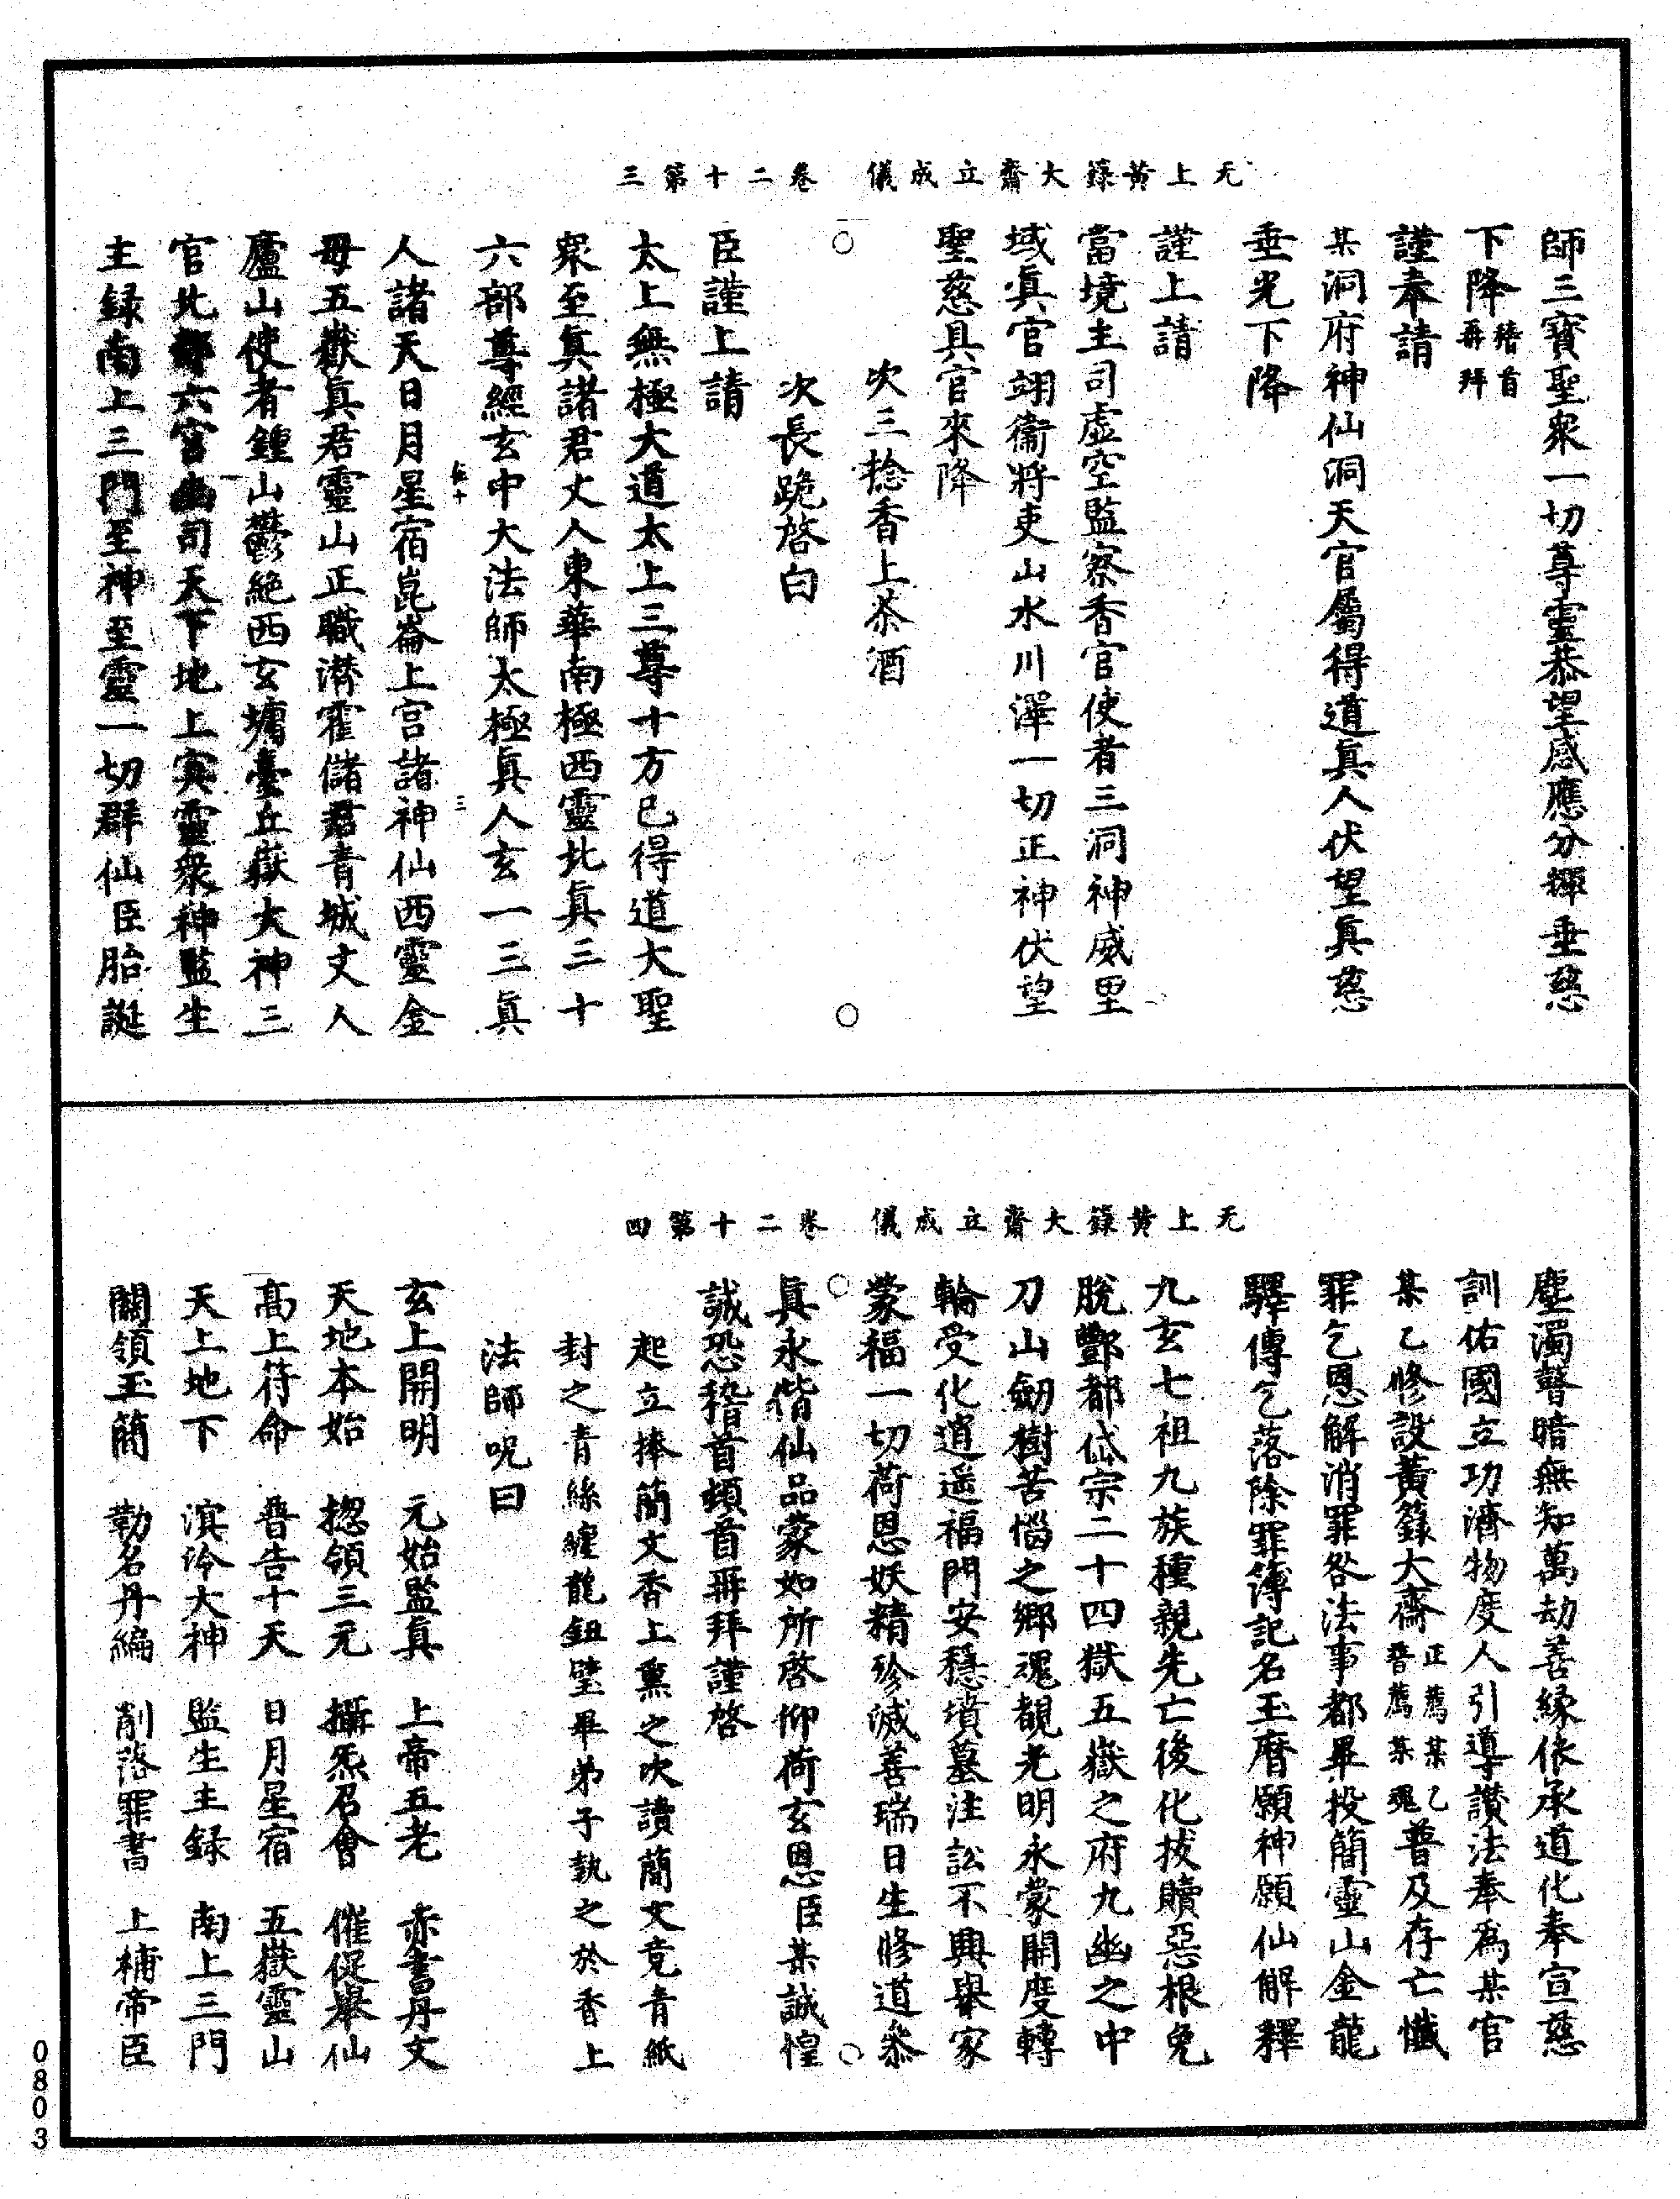 无上黃籙大齋立成儀 卷二十第三
師三寶聖衆一切尊靈恭望感應分輝垂慈
下降稽首再拜
謹奉請
某洞府神仙洞天官屬得道真人伏望真慈
垂光下降
謹上請
當境主司虛空監察香官使者三洞神威里
域真官翊衞將吏山水川澤一切正神伏望
聖慈具官來降
次三捻香上茶酒
次長跪啓白
臣謹上請
太上無極大道太上三尊十方已得道大聖
衆至真諸君丈人東華南極西靈北真三十
六部尊經玄中大法師太極真人玄一三真
人諸天日月星宿崑崙上宮諸神仙西靈金
母五嶽真君靈山正職潛霍儲君青城丈人
廬山使者鍾山鬱絶西玄墉臺丘嶽大神三
官北酆六宮幽司天下地上冥靈衆神監生
主録南上三門至神至靈一切群仙臣胎誕
无上黃籙大齋立成儀 卷二十第四
塵濁瞽暗無知萬劫善緣依承道化奉宣慈
訓佑國立功濟物度人引導讚法奉爲某官
某乙修設黃籙大齋正薦某乙普薦某魂普及存亡懺
罪乞恩解消罪咎法事都畢投簡靈山金龍
驛傳乞落除罪簿記名玉曆願神願仙解釋
九玄七祖九族種親先亡後化拔贖惡根免
脫酆都岱宗二十四獄五嶽之府九幽之中
刀山劒樹苦惱之鄉魂覩光明永蒙開度轉
輪受化逍遥福門安穩墳墓注訟不興舉家
蒙福一切荷恩妖精殄滅善瑞日生修道叅
真永偕仙品蒙如所啓仰荷玄恩臣某誠惶
誠恐稽首頓首再拜謹啓
起立捧簡文香上熏之次讀簡文竟青紙
封之青絲纏龍鈕璧畢弟子執之於香上
法師呪曰
玄上開明 元始監真 上帝五老 赤書丹文
天地本始 揔領三元 攝炁召會 催促舉仙
髙上符命 普告十天 日月星宿 五嶽靈山
天上地下 溟泠大神 監生主録 南上三門
關領玉簡 勒名丹編 削落罪書 上補帝臣
0803